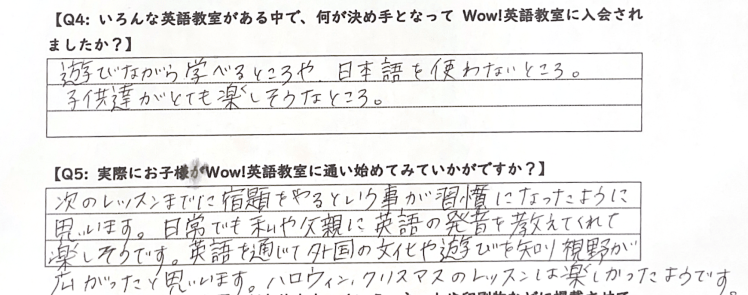 【Q4: いろんな英語教室がある中で、何が決め手となって Wow!英語教室に入会され
ましたか？】
遊びながら学べるところや、日本語を使わないところ。
子供達がとても楽しそうなところ。
【Q5: 実際にお子様がWow!英語教室に通い始めてみていかがですか？】
次のレッスンまでに宿題をやるという事が習慣になったように
思います。日常でも私や父親に英語の発音を教えてくれて
楽しそうです。英語を通じて外国の文化や遊びを知り視野が
広がったと思います。ハロウィン、クリスマスのレッスンは楽しかったようです